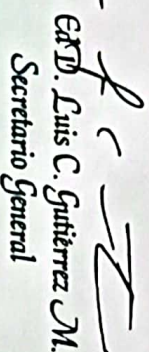 Ed.D. Luis C. Gutiérrez M.
Secretario General